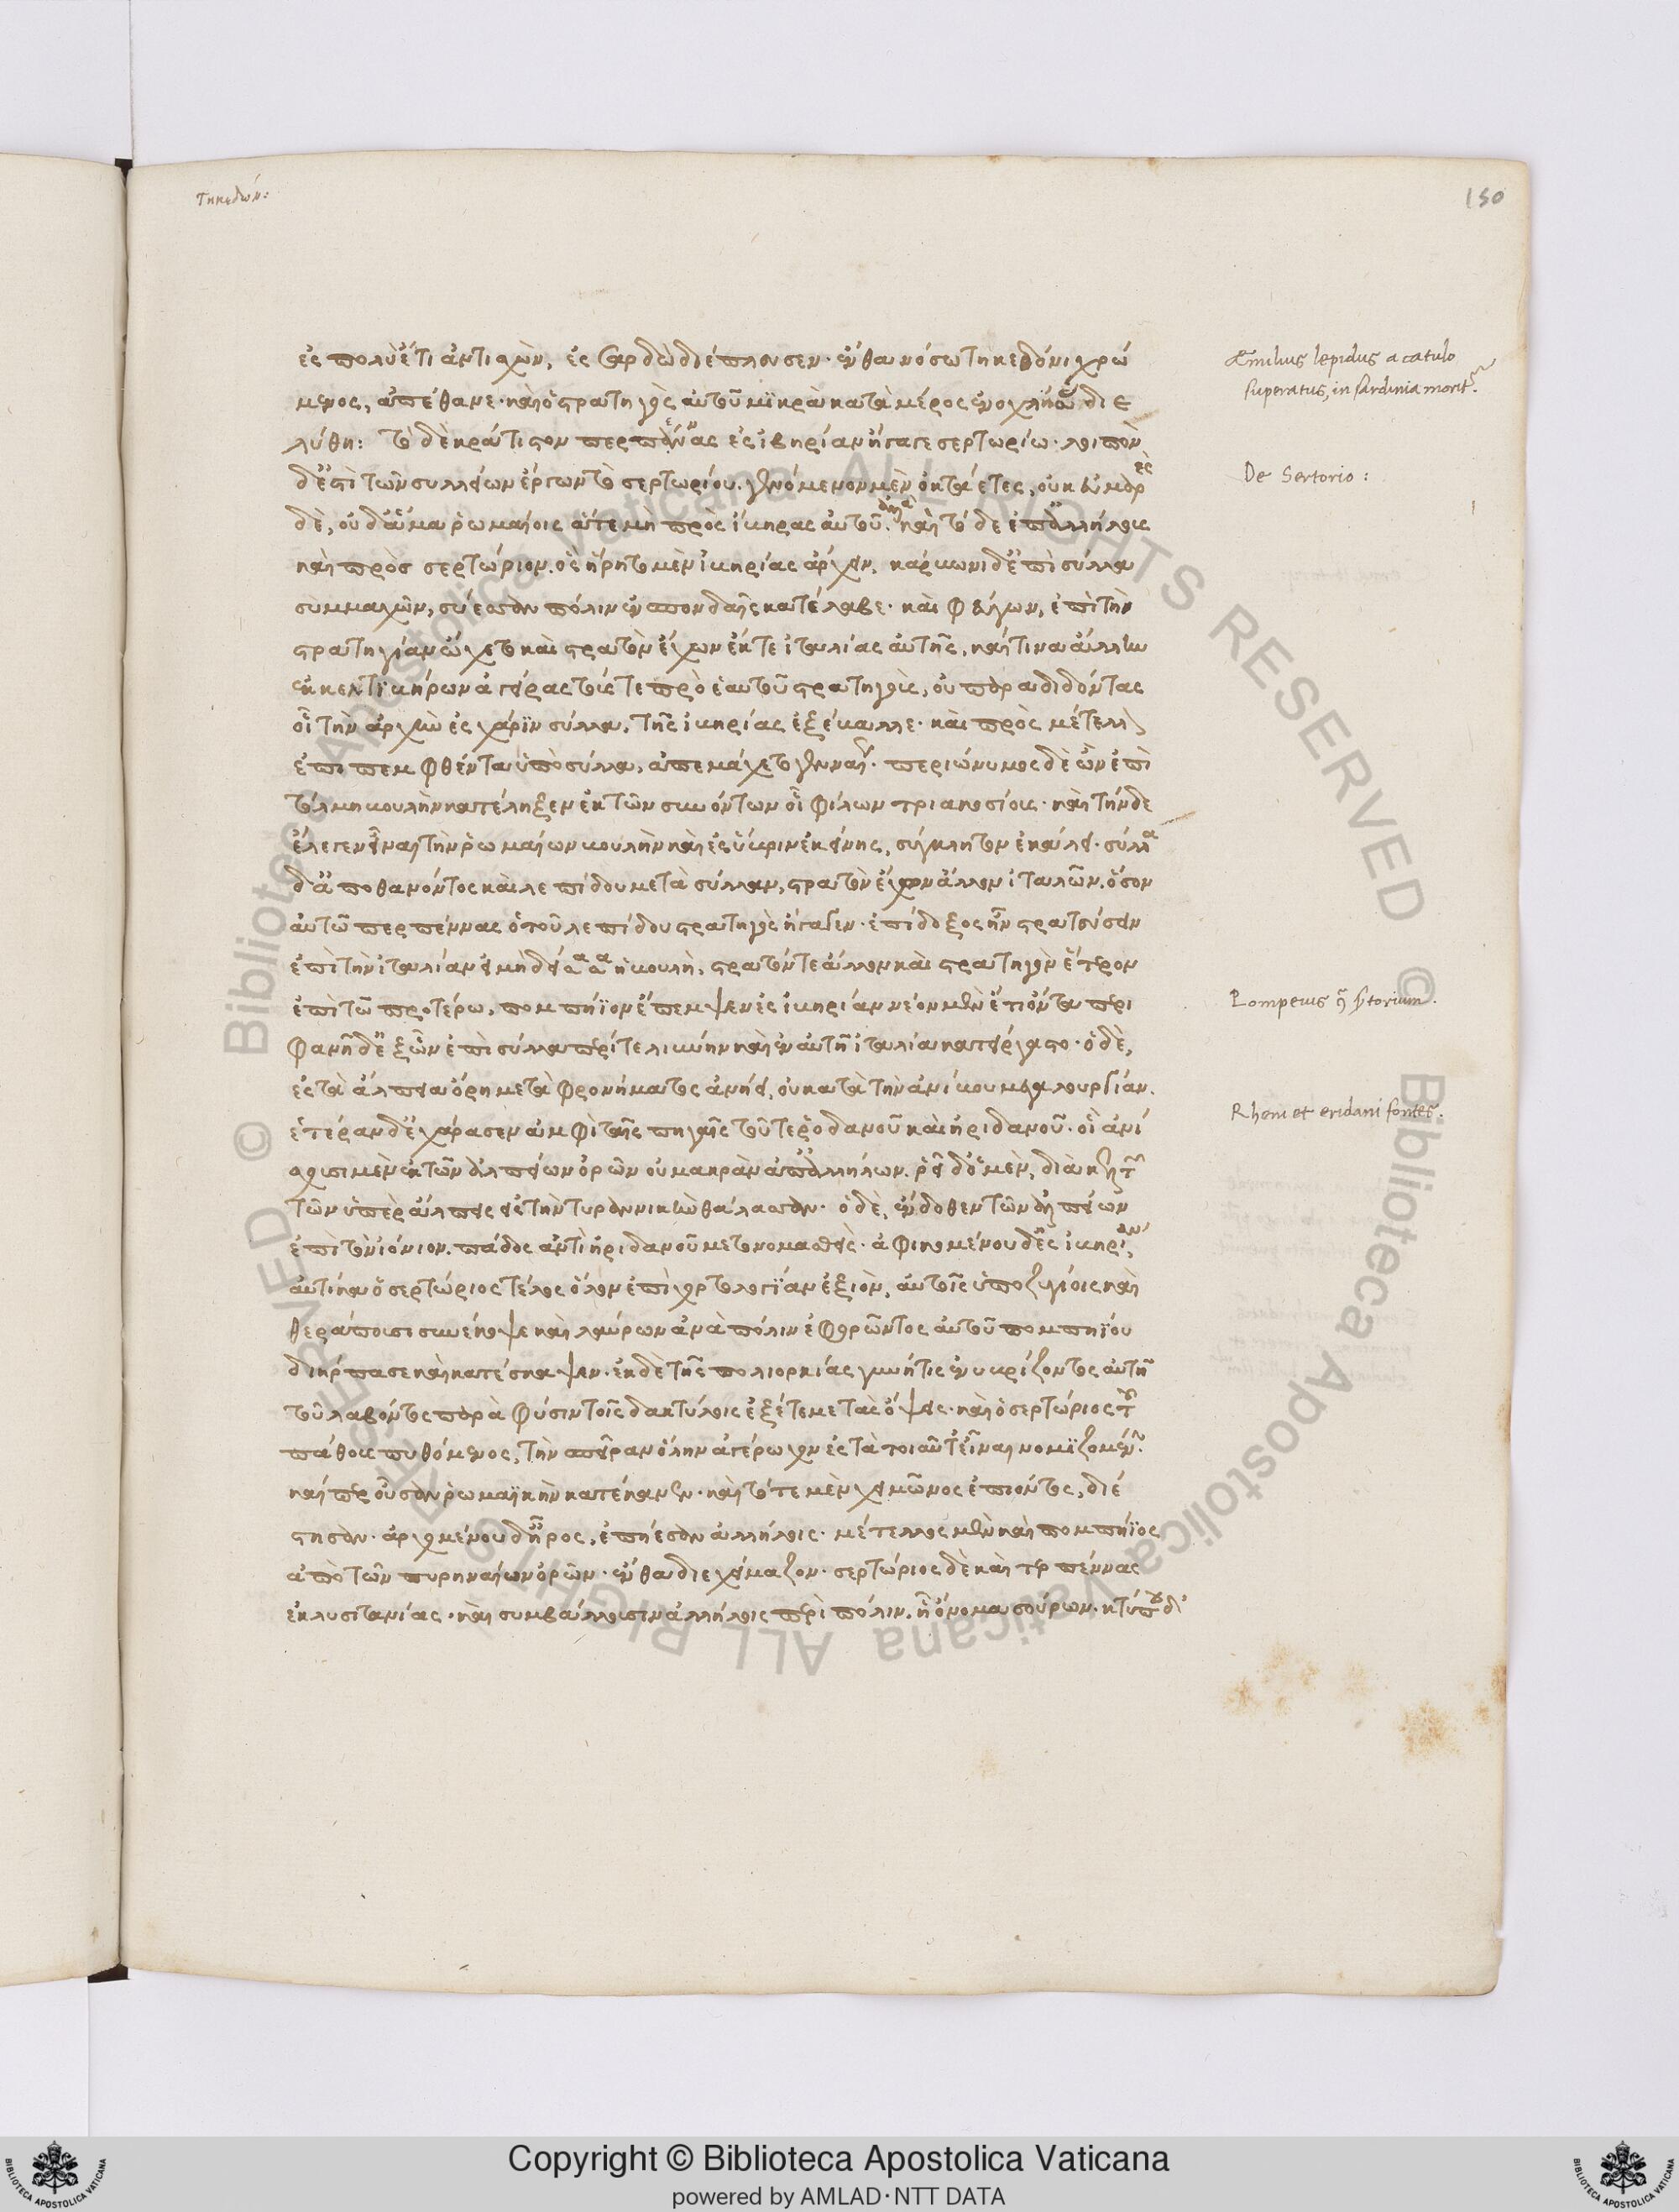 τηκεδών:
150
ἐς πολὺ ἔτι ἀντισχὼν, ἐς σαρδὼ διέπλευσεν· ἔνθα νόσω τηκεδόνι χρώ
μενος, ἀπέθανε· καὶ ὁ στρατηγὸς αὐτοῦ μϊκρὰ κατὰ μέρος ἐνοχλήσας διε
λύθη: τὸ δὲ κράτιστον περπέννας ἐς ἰβηρίαν ἤγαγε σερτωρίω· λοιπὸν
δ' ἔστι τῶν συλλείων ἔργων τὸ σερτωρίου. γενόμενον μὲν ὀκτάετες, οὐκ εὐμαρὲς
δὲ, οὐδ' ἅμα ῥωμαίοις ἅτε μὴ πρὸς ἴβηρας αὐτοῦ. ἀλλὰ καὶ τόδε ἐπ' ἀλλήλοις
καὶ πρὸς σερτώριον. ὃς ἥρητο μὲν ἰβηρίας ἄρχειν, κάρβωνι δ' ἐπὶ σύλλα
συμμαχῶν, σύεσσαν πόλιν ἐν σπονδαῖς κατέλαβε· καὶ φεύγων, ἐπὶ τὴν
στρατηγίαν ᾤχετο καὶ στρατὸν ἔχων ἔκ τε ἰταλίας αὐτῆς, καί τινα ἄλλον
ἐκ κελτϊβήρων ἀγείρας τούς τε πρὸ ἑαυτοῦ στρατηγοὺς, οὐ παραδιδόντας
οἷ τὴν ἀρχὴν ἐς χάριν σύλλα, τῆς ἰβηρίας ἐξέβαλλε· καὶ πρὸς μέτελλον
ἐπιπεμφθέντα ὑπὸ σύλλα, ἀπεμάχετο γενναίως· περιώνυμος δὲ ὢν ἐπὶ
τόλμη βουλὴν κατέλεξεν ἐκ τῶν συνόντων οἷ φίλων τριακοσίους· καὶ τήνδε
ἔλεγεν εἶναι τὴν ῥωμαίων βουλὴν καὶ ἐς ὕβριν ἐκείνης, σύγκλητον ἐκάλει· σύλλα
δ' ἀποθανόντος καὶ λεπίδου μετὰ σύλλαν, στρατὸν ἔχων ἄλλον ἰταλῶν. ὅσον
αὐτῶ περπέννας ὁ τοῦ λεπίδου στρατηγὸς ἤγαγεν· ἐπίδοξος ἦν στρατεύσειν
ἐπὶ τὴν ἰταλίαν εἰ μὴ δείσασα ἡ βουλὴ, στρατόν τε ἄλλον καὶ στρατηγὸν ἕτερον
ἐπὶ τῶ προτέρω, πομπήϊον ἔπεμψεν ἐς ἰβηρίαν νέον μὲν ἔτι ὄντα περι
φανῆ δ' ἐξ ὧν ἐπὶ σύλλα περί τε λιβύην καὶ ἐν αὐτῆ ἰταλία κατείργαστο· ὁ δὲ,
ἐς τὰ ἄλπεια ὄρη μετὰ φρονήματος ἀνήει, οὐ κατὰ τὴν ἀννίβου μεγαλουργίαν.
ἑτέραν δ' ἐχάρασσεν ἀμφὶ ταῖς πηγαῖς τοῦ τε ῥοδανοῦ καὶ ἠριδανοῦ. οἳ ἀνί
σχουσι μὲν ἐκ τῶν ἀλπείων ὀρῶν οὐ μακρὰν ἀπ' ἀλλήλων. ῥεῖ δ' ὁ μὲν, διὰ κελτῶν
τῶν ὑπὲρ ἄλπεις ἐς τὴν τυρρηνικὴν θάλασσαν· ὁ δὲ, ἔνδοθεν τῶν ἀλπείων
ἐπὶ τὸν ἰόνιον. πάδος ἀντὶ ἠριδανοῦ μετονομασθείς· ἀφικομένου δ' ἐς ἰβηρίαν
αὐτίκα ὁ σερτώριος τέλος ὅλον ἐπὶ χορτολογίαν ἐξιὸν, αὐτοῖς ὑποζυγίοις καὶ
θεράπουσι συνέκοψε καὶ λαύρων ἀνὰ πόλιν ἐφορῶντος αὐτοῦ πομπηΐου
διήρπασε καὶ κατέσκαψεν· ἐκ δὲ τῆς πολιορκίας γυνή τις ἐνυβρίζοντος αὐτῆ
τοῦ λαβόντος παρὰ φύσιν τοῖς δακτύλοις ἐξέτεμε τὰς ὄψεις· καὶ ὁ σερτώριος τοῦ
πάθους πυθόμενος, τὴν σπεῖραν ὅλην ἀγέρωχον ἐς τὰ τοιαῦτ' εἶναι νομϊζομένην
καίπερ οὖσαν ῥωμαϊκὴν κατέκανεν· καὶ τότε μὲν χειμῶνος ἐπιόντος, διέ
στησαν· ἀρχομένου δ' ἦρος, ἐπήεσαν ἀλλήλοις· μέτελλος μὲν καὶ πομπήϊος
ἀπὸ τῶν πυρηναίων ὀρῶν· ἔνθα διεχείμαζον· σερτώριος δὲ καὶ περπέννας
ἐκ λυσιτανίας· καὶ συμβάλλουσιν ἀλλήλοις περὶ πόλιν. ἧ ὄνομα σούρων·
Æmilius lepidus a catulo
superatus, in sardinia morit<sup>r</sup>.
De Sertorio:
Pompeius
Rheni et eridani fontes.
Copyright © Biblioteca Apostolica Vaticana
powered by AMLAD·NTT DATA